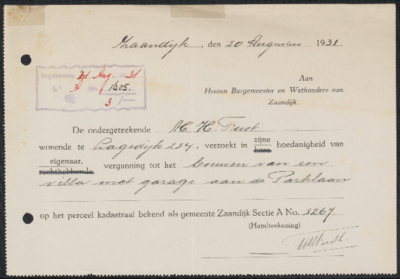 Zaandijk, den 20 Augustus 1931
21 Aug. 31
1805.
3
Aan
Heeren Burgemeester en Wethouders van
Zaandijk.
De ondergeteekende H. H. Smit
wonende te Lagedijk 234, verzoekt in zijne hare hoedanigheid van
eigenaar, rechthebbende, vergunning tot het bouwen van een
villa met garage aan de Parklaan
op het perceel kadastraal bekend als gemeente Zaandijk Sectie A No. 3267
(Handteekening)